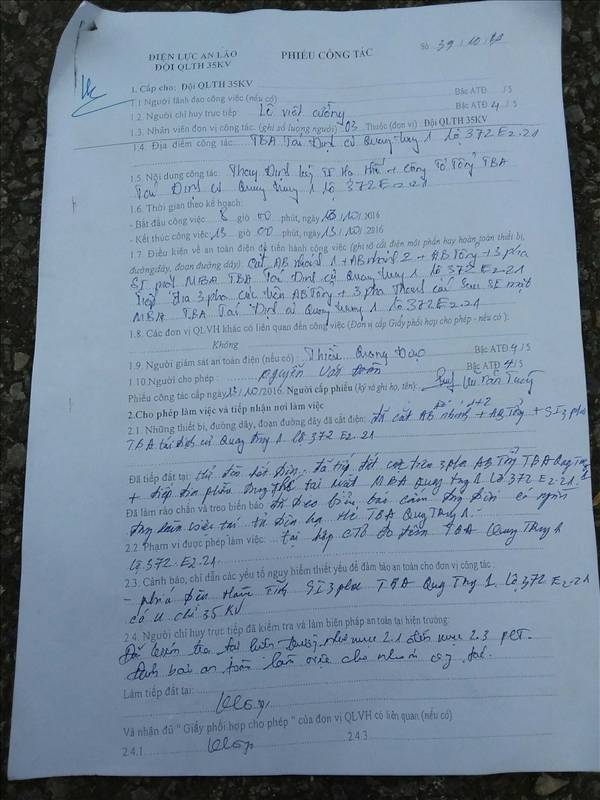 ĐIỆN LỰC AN LÃO PHIẾU CÔNG TÁC Số 39/10/
ĐỘI QLTH 35KV
1. Cấp cho: Đội QLTH 35KV
1.1 Người lãnh đạo công việc (nếu có) Bậc ATĐ / 5
1.2. Người chỉ huy trực tiếp: Lê viết cường Bậc ATĐ 4 / 5
1.3. Nhân viên đơn vị công tác. (ghi số lượng người) 03 Thuộc (đơn vị) Đội QLTH 35KV
1.4. Địa điểm công tác: TBA Tái Định cư Quang Hưng 1 lộ 372 E2.21
1.5. Nội dung công tác: Thay Định kỳ TI Hạ thế + Công Tơ Tổng TBA
Tái Định cư Quang Hưng 1 lộ 372 E2.21
1.6. Thời gian theo kế hoạch:
- Bắt đầu công việc: 8 giờ 00 phút, ngày 13/10/2016
- Kết thúc công việc: 15 giờ 00 phút, ngày 13/10/2016
1.7. Điều kiện về an toàn điện để tiến hành công việc (ghi rõ cắt điện một phần hay hoàn toàn thiết bị,
đường dây, đoạn đường dây) Cắt AB nhánh 1 + AB nhánh 2 + AB Tổng + 3 pha
SI phía MBA TBA Tái Định cư Quang Hưng 1 lộ 372 E2.21
Tiếp địa 3 pha cực trên AB Tổng + 3 pha Thanh cái sau SI mặt
MBA TBA Tái Định cư Quang Hưng 1 lộ 372 E2.21
1.8. Các đơn vị QLVH khác có liên quan đến công việc (Đơn vị cấp Giấy phối hợp cho phép - nếu có ):
Không
1.9. Người giám sát an toàn điện (nếu có) : Thiều Quang Đạo Bậc ATĐ 4 / 5
1.10 Người cho phép : Nguyễn Văn Bậc ATĐ 4 / 5
Phiếu công tác cấp ngày 13/10/2016. Người cấp phiếu (ký và ghi họ, tên):
2.Cho phép làm việc và tiếp nhận nơi làm việc
2.1. Những thiết bị, đường dây, đoạn đường dây đã cắt điện: đã cắt AB nhánh 1+2 + AB Tổng + SI 3 pha
TBA tái Định cư Quang Hưng 1 lộ 372 E2.21
Đã tiếp đất tại: đã tiếp đất cực trên 3 pha AB Tổng TBA
+ tiếp địa tại mặt MBA 1 Lộ 372 E2.21
Đã làm rào chắn và treo biển báo đã treo biển báo cấm Đóng Điện có người
đang làm việc tại tủ điện hạ thế TBA 1
2.2. Phạm vi được phép làm việc: tại hộp CTơ đo đếm TBA
lộ 372 E2.21
2.3. Cảnh báo, chỉ dẫn các yếu tố nguy hiểm thiết yếu để đảm bảo an toàn cho đơn vị công tác :
- phía trên SI 3 pha TBA 1 lộ 372 E2.21
có U 35 KV
2.4. Người chỉ huy trực tiếp đã kiểm tra và làm biện pháp an toàn tại hiện trường:
Đã kiểm tra tại hiện trường như mục 2.1 đến mục 2.3 PCT
đảm bảo an toàn làm việc cho nhóm công tác
Làm tiếp đất tại:
Không
Và nhận đủ " Giấy phối hợp cho phép " của đơn vị QLVH có liên quan (nếu có)
2.4.1 Không 2.4.3